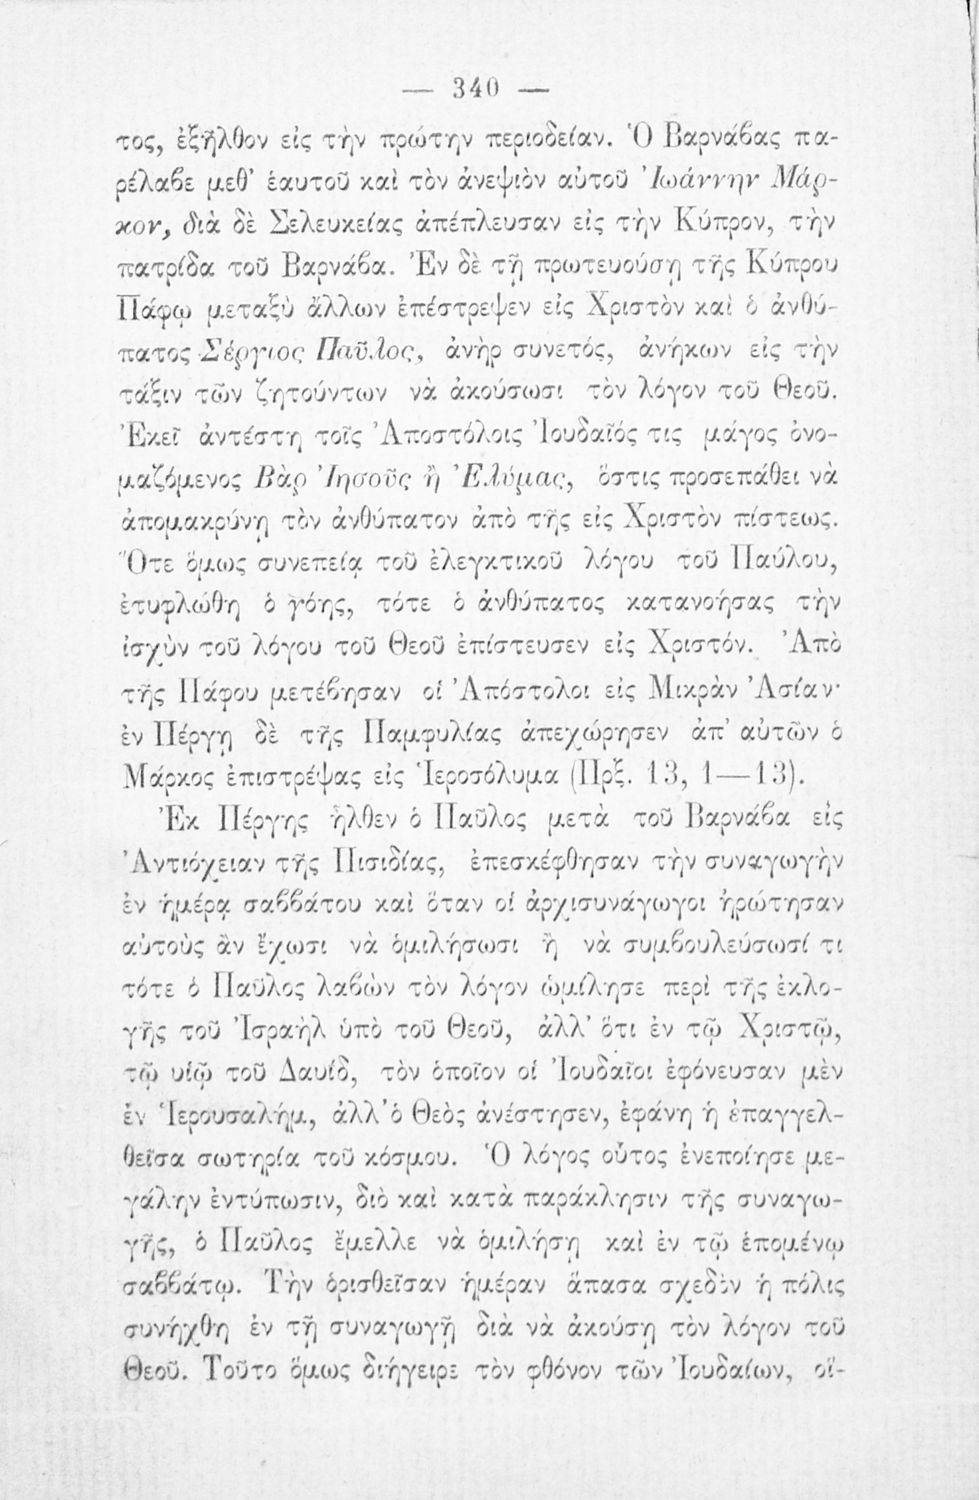 — 340 —
τος, ἐξῆλθον εἰς τὴν πρώτην περιοδείαν. Ὁ Βαρνάβας πα-
ρέλαβε μεθ' ἑαυτοῦ καὶ τὸν ἀνεψιὸν αὐτοῦ Ἰωάννην Μάρ-
κον, διὰ δὲ Σελευκείας ἀπέπλευσαν εἰς τὴν Κύπρον, τὴν
πατρίδα τοῦ Βαρνάβα. Ἐν δὲ τῇ πρωτευούσῃ τῆς Κύπρου
Πάφῳ μεταξὺ ἄλλων ἐπέστρεψεν εἰς Χριστὸν καὶ ὁ ἀνθύ-
πατος Σέργιος Παῦλος, ἀνὴρ συνετός, ἀνήκων εἰς τὴν
τάξιν τῶν ζητούντων νὰ ἀκούσωσι τὸν λόγον τοῦ Θεοῦ.
Ἐκεῖ ἀντέστη τοῖς Ἀποστόλοις Ἰουδαῖός τις μάγος ὀνο-
μαζόμενος Βὰρ Ἰησοῦς ἢ Ἐλύμας, ὅστις προσεπάθει νὰ
ἀπομακρύνῃ τὸν ἀνθύπατον ἀπὸ τῆς εἰς Χριστὸν πίστεως.
Ὅτε ὅμως συνεπείᾳ τοῦ ἐλεγκτικοῦ λόγου τοῦ Παύλου,
ἐτυφλώθη ὁ γόης, τότε ὁ ἀνθύπατος κατανοήσας τὴν
ἰσχὺν τοῦ λόγου τοῦ Θεοῦ ἐπίστευσεν εἰς Χριστόν. Ἀπὸ
τῆς Πάφου μετέβησαν οἱ Ἀπόστολοι εἰς Μικρὰν Ἀσίαν·
ἐν Πέργῃ δὲ τῆς Παμφυλίας ἀπεχώρησεν ἀπ' αὐτῶν ὁ
Μάρκος ἐπιστρέψας εἰς Ἱεροσόλυμα (Πρξ. 13, 1—13).
Ἐκ Πέργης ἦλθεν ὁ Παῦλος μετὰ τοῦ Βαρνάβα εἰς
Ἀντιόχειαν τῆς Πισιδίας, ἐπεσκέφθησαν τὴν συναγωγὴν
ἐν ἡμέρᾳ σαββάτου καὶ ὅταν οἱ ἀρχισυνάγωγοι ἠρώτησαν
αὐτοὺς ἂν ἔχωσι νὰ ὁμιλήσωσι ἢ νὰ συμβουλεύσωσί τι
τότε ὁ Παῦλος λαβὼν τὸν λόγον ὡμίλησε περὶ τῆς ἐκλο-
γῆς τοῦ Ἰσραὴλ ὑπὸ τοῦ Θεοῦ, ἀλλ' ὅτι ἐν τῷ Χριστῷ,
τῷ υἱῷ τοῦ Δαυίδ, τὸν ὁποῖον οἱ Ἰουδαῖοι ἐφόνευσαν μὲν
ἐν Ἱερουσαλήμ, ἀλλ' ὁ Θεὸς ἀνέστησεν, ἐφάνη ἡ ἐπαγγελ-
θεῖσα σωτηρία τοῦ κόσμου. Ὁ λόγος οὗτος ἐνεποίησε με-
γάλην ἐντύπωσιν, διὸ καὶ κατὰ παράκλησιν τῆς συναγω-
γῆς, ὁ Παῦλος ἔμελλε νὰ ὁμιλήσῃ καὶ ἐν τῷ ἑπομένῳ
σαββάτῳ. Τὴν ὁρισθεῖσαν ἡμέραν ἅπασα σχεδὸν ἡ πόλις
συνήχθη ἐν τῇ συναγωγῇ διὰ νὰ ἀκούσῃ τὸν λόγον τοῦ
Θεοῦ. Τοῦτο ὅμως διήγειρε τὸν φθόνον τῶν Ἰουδαίων, οἵ-